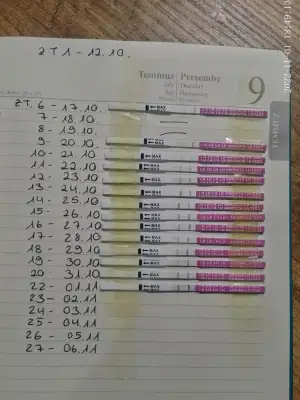 ZT 1 - 12.10.
Temmuz Perşembe
July Thursday
9
TEMMUZ
ZT. 6 - 17.10.
7 - 18.10
8 - 19.10.
9 - 20.10
10 - 21.10
11 - 22.10
12 - 23.10
13 - 24.10
14 - 25.10
15 - 26.10
16 - 27.10
17 - 28.10
18 - 29.10
19 - 30.10
20 31.10
22 - 01.11
23 - 02.11
24 - 03.11
25 - 04.11
26 - 05.11
27 - 06.11
MAX
MAX
MAX
MAX
MAX
MAX
MAX
MAX
MAX
MAX
MAX
MAX
MAX
MAX